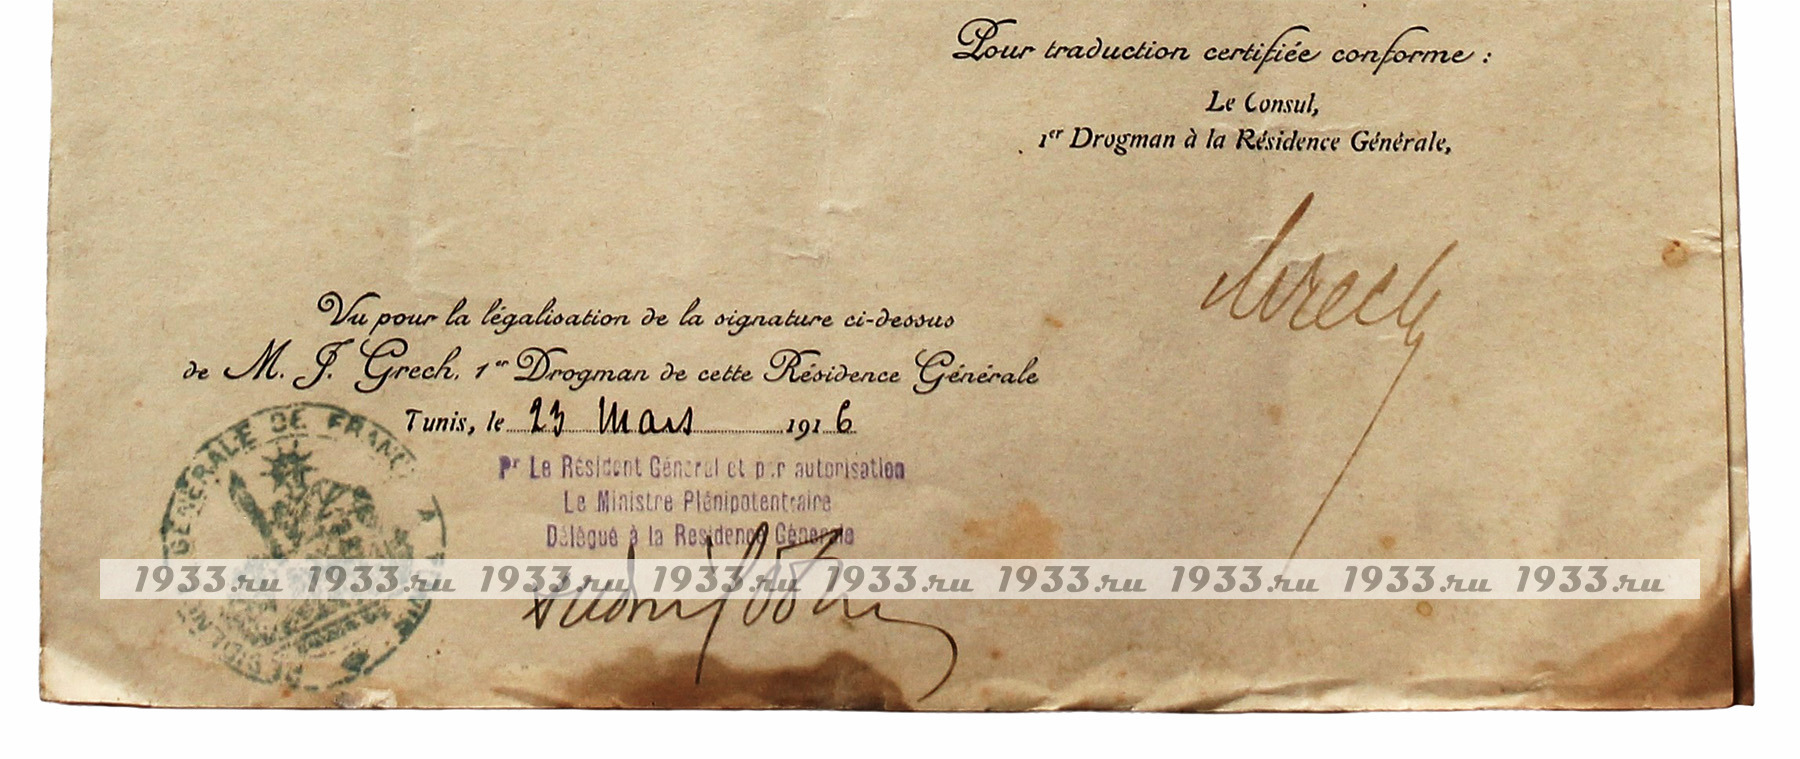 Pour traduction certifiée conforme :
Le Consul,
1er Drogman à la Résidence Générale,
Grech
Vu pour la légalisation de la signature ci-dessus
de M. J. Grech, 1er Drogman de cette Résidence Générale
Tunis, le 23 Mars 1916
Pr Le Résident Général et par autorisation
Le Ministre Plénipotentiaire
Délégué à la Residence Générale
GÉNÉRALE DE FRANCE A
1933.ru 1933.ru 1933.ru 1933.ru 1933.ru 1933.ru 1933.ru 1933.ru 1933.ru